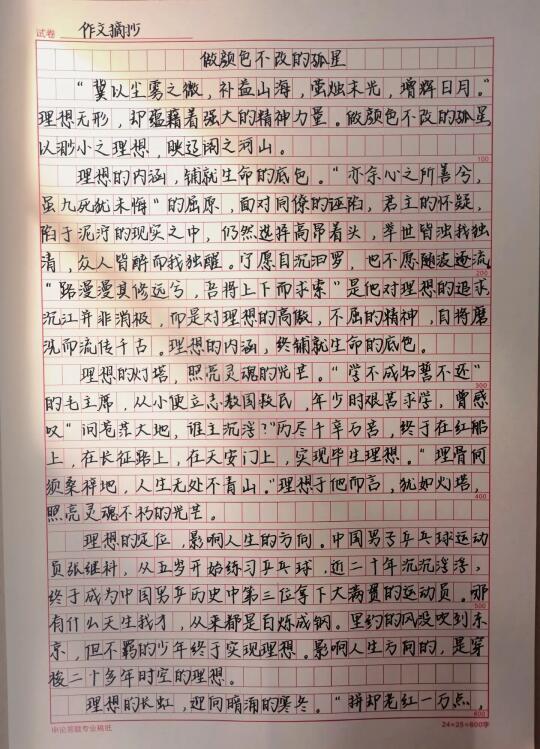 试卷 作文摘抄
做颜色不改的孤星
“冀以尘雾之微，补益山海，萤烛末光，增辉日月。”
理想无形，却蕴藉着强大的精神力量。做颜色不改的孤星
以渺小之理想，映辽阔之河山。
100
理想的内涵，铺就生命的底包。“亦余心之所善兮，
虽九死犹未悔”的屈原，面对同僚的诬陷，君主的怀疑，
陷于泥泞的现实之中，仍然选择高昂着头，举世皆浊我独
清，众人皆醉而我独醒。宁愿自沉汨罗，也不愿随波逐流
200
“路漫漫其修远兮，吾将上下而求索”是他对理想的追求
沉江并非消极，而是对理想的高傲，不屈的精神，自将磨
洗而流传千古。理想的内涵，终铺就生命的底包。
理想的灯塔，照亮灵魂的光芒。“学不成名誓不还”
300
的毛主席，从小便立志救国救民，年少时艰苦求学，曾感
叹“问苍茫大地，谁主沉浮？”历尽千辛万苦，终于在红船
上，在长征路上，在天安门上，实现毕生理想。“埋骨何
须桑梓地，人生无处不青山。”理想于他而言，犹如灯塔，
400
照亮灵魂不朽的光芒。
理想的定位，影响人生的方向。中国男子乒乓球运动
员张继科，从五岁开始练习乒乓球，近二十年沉沉浮浮，
终于成为中国男乒历史中第三位拿下大满贯的运动员。哪
500
有什么天生我才，从来都是百炼成钢。里约的风没吹到东
京，但不羁的少年终于实现理想。影响人生方向的，是穿
梭二十多年时空的理想。
理想的长虹，迎向暗涌的寒冬。“拼却老红一万点，
600
申论答题专业稿纸 24×25=600字